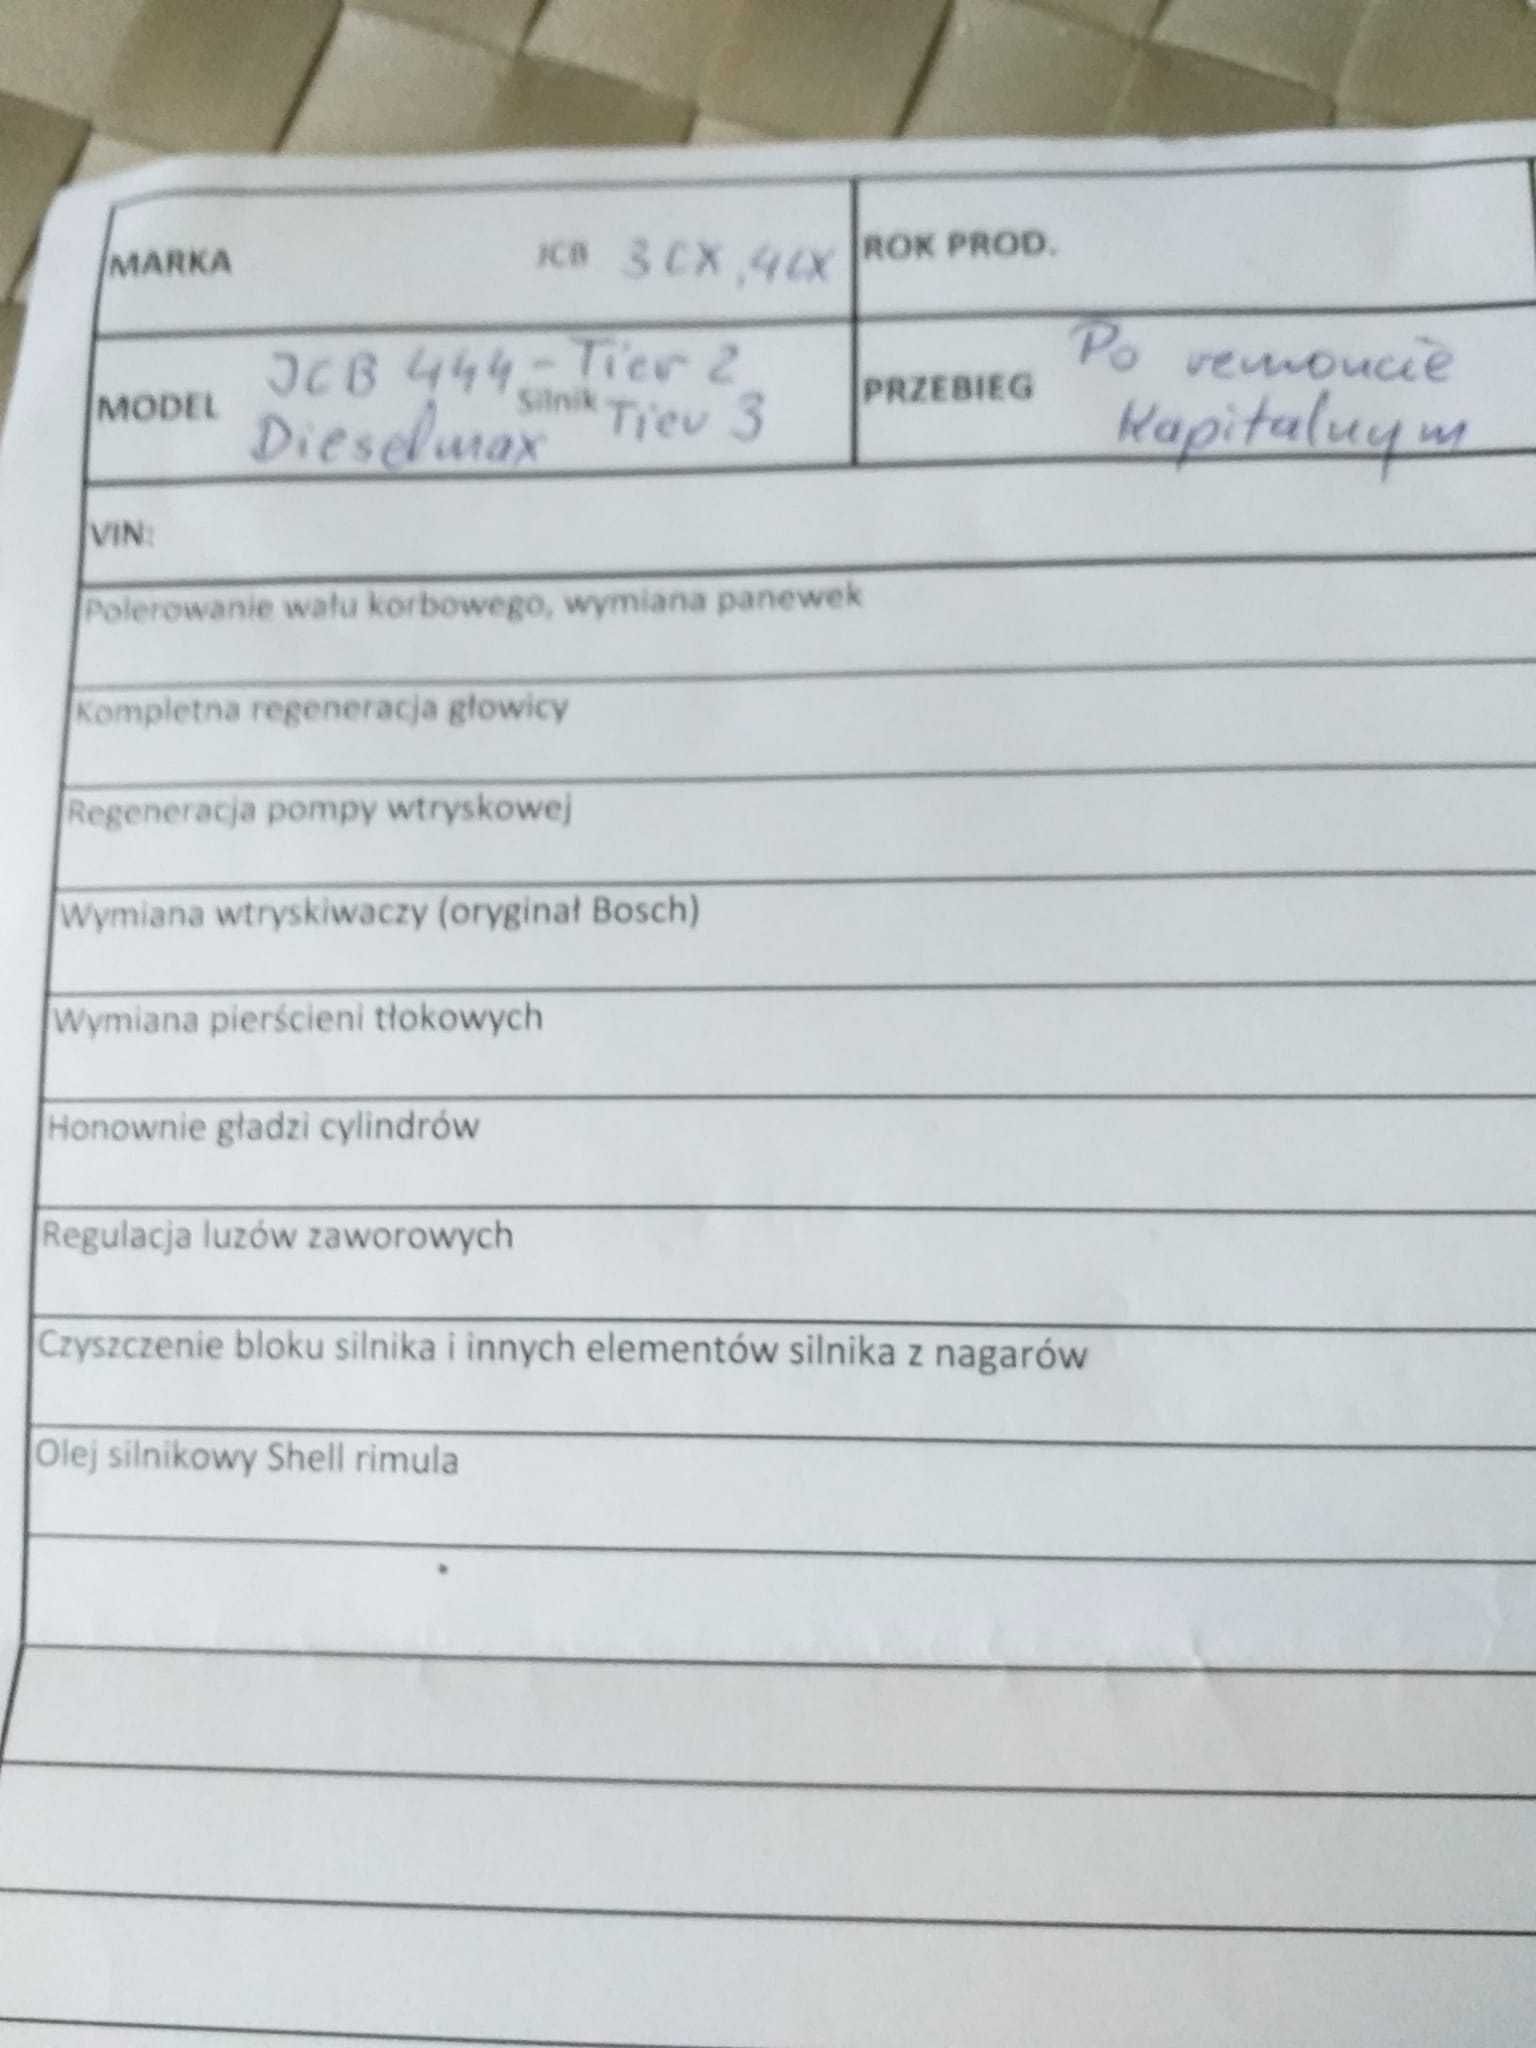 MARKA JCB 3CX, 4CX ROK PROD.
MODEL JCB 444 - Tier 2 PRZEBIEG Po remoncie
Dieselmax Silnik Tier 3 Kapitalnym
VIN:
Polerowanie wału korbowego, wymiana panewek
Kompletna regeneracja głowicy
Regeneracja pompy wtryskowej
Wymiana wtryskiwaczy (oryginał Bosch)
Wymiana pierścieni tłokowych
Honownie gładzi cylindrów
Regulacja luzów zaworowych
Czyszczenie bloku silnika i innych elementów silnika z nagarów
Olej silnikowy Shell rimula